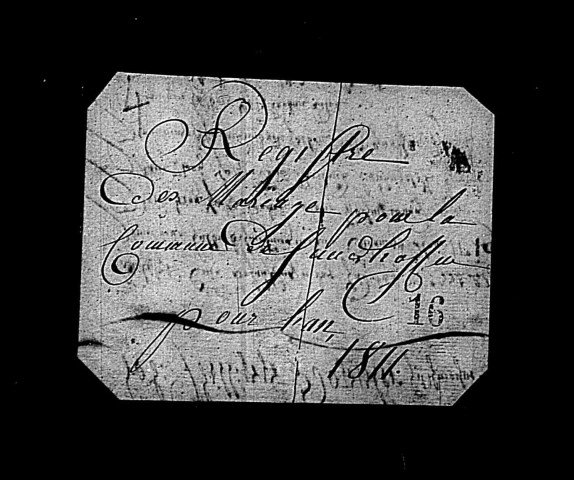 4
Registre
Des Mariage pour la
Commune De Sandhoffen
16
pour l'an
1811.